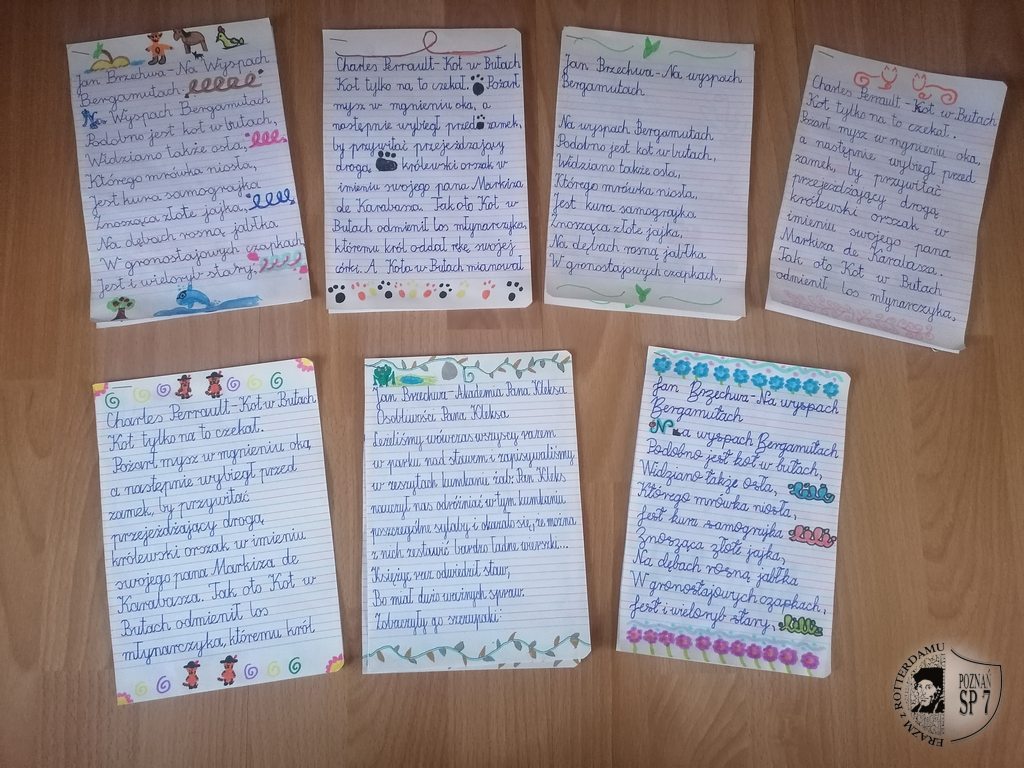 Jan Brzechwa - Na Wyspach
Bergamutach.
Na Wyspach Bergamutach
Podobno jest kot w butach,
Widziano także osła,
Którego mrówka niosła,
Jest kura samograjka
Znosząca złote jajka,
Na dębach rosną jabłka
W gronostajowych czapkach
Jest i wieloryb stary,
Charles Perrault - Kot w Butach
Kot tylko na to czekał. Pożarł
mysz w mgnieniu oka, a
następnie wybiegł przed zamek,
by przywitać przejeżdżający
drogą królewski orszak w
imieniu swojego pana Markiza
de Karabasza. Tak oto Kot w
Butach odmienił los młynarczyka,
któremu król oddał rękę swojej
córki. A Kota w Butach mianował
Jan Brzechwa - Na wyspach
Bergamutach.
Na wyspach Bergamutach
Podobno jest kot w butach,
Widziano także osła,
Którego mrówka niosła,
Jest kura samograjka
Znosząca złote jajka,
Na dębach rosną jabłka
W gronostajowych czapkach,
Charles Perrault - Kot w Butach
Kot tylko na to czekał.
Pożarł mysz w mgnieniu oka,
a następnie wybiegł przed
zamek, by przywitać
przejeżdżający drogą
królewski orszak w
imieniu swojego pana
Markiza de Karabasza.
Tak oto Kot w Butach
odmienił los młynarczyka,
Charles Perrault - Kot w Butach
Kot tylko na to czekał.
Pożarł mysz w mgnieniu oka,
a następnie wybiegł przed
zamek, by przywitać
przejeżdżający drogą
królewski orszak w imieniu
swojego pana Markiza de
Karabasza. Tak oto Kot w
Butach odmienił los
młynarczyka, któremu król
Jan Brzechwa - Akademia Pana Kleksa
Osobliwości Pana Kleksa
Leżeliśmy wówczas wszyscy razem
w parku nad stawem i zapisywaliśmy
w zeszytach kumkanie żab. Pan Kleks
nauczył nas odróżniać w tym kumkaniu
poszczególne sylaby, i okazało się, że można
z nich zestawić bardzo ładne wierszyki...
Księżyc raz odwiedził staw,
Bo miał dużo ważnych spraw.
Zobaczyły go szczupaki:
Jan Brzechwa - Na wyspach
Bergamutach
Na wyspach Bergamutach
Podobno jest kot w butach,
Widziano także osła,
Którego mrówka niosła,
Jest kura samograjka
Znosząca złote jajka,
Na dębach rosną jabłka
W gronostajowych czapkach,
Jest i wieloryb stary,
ERAZM z ROTTERDAMU
POZNAŃ
SP 7